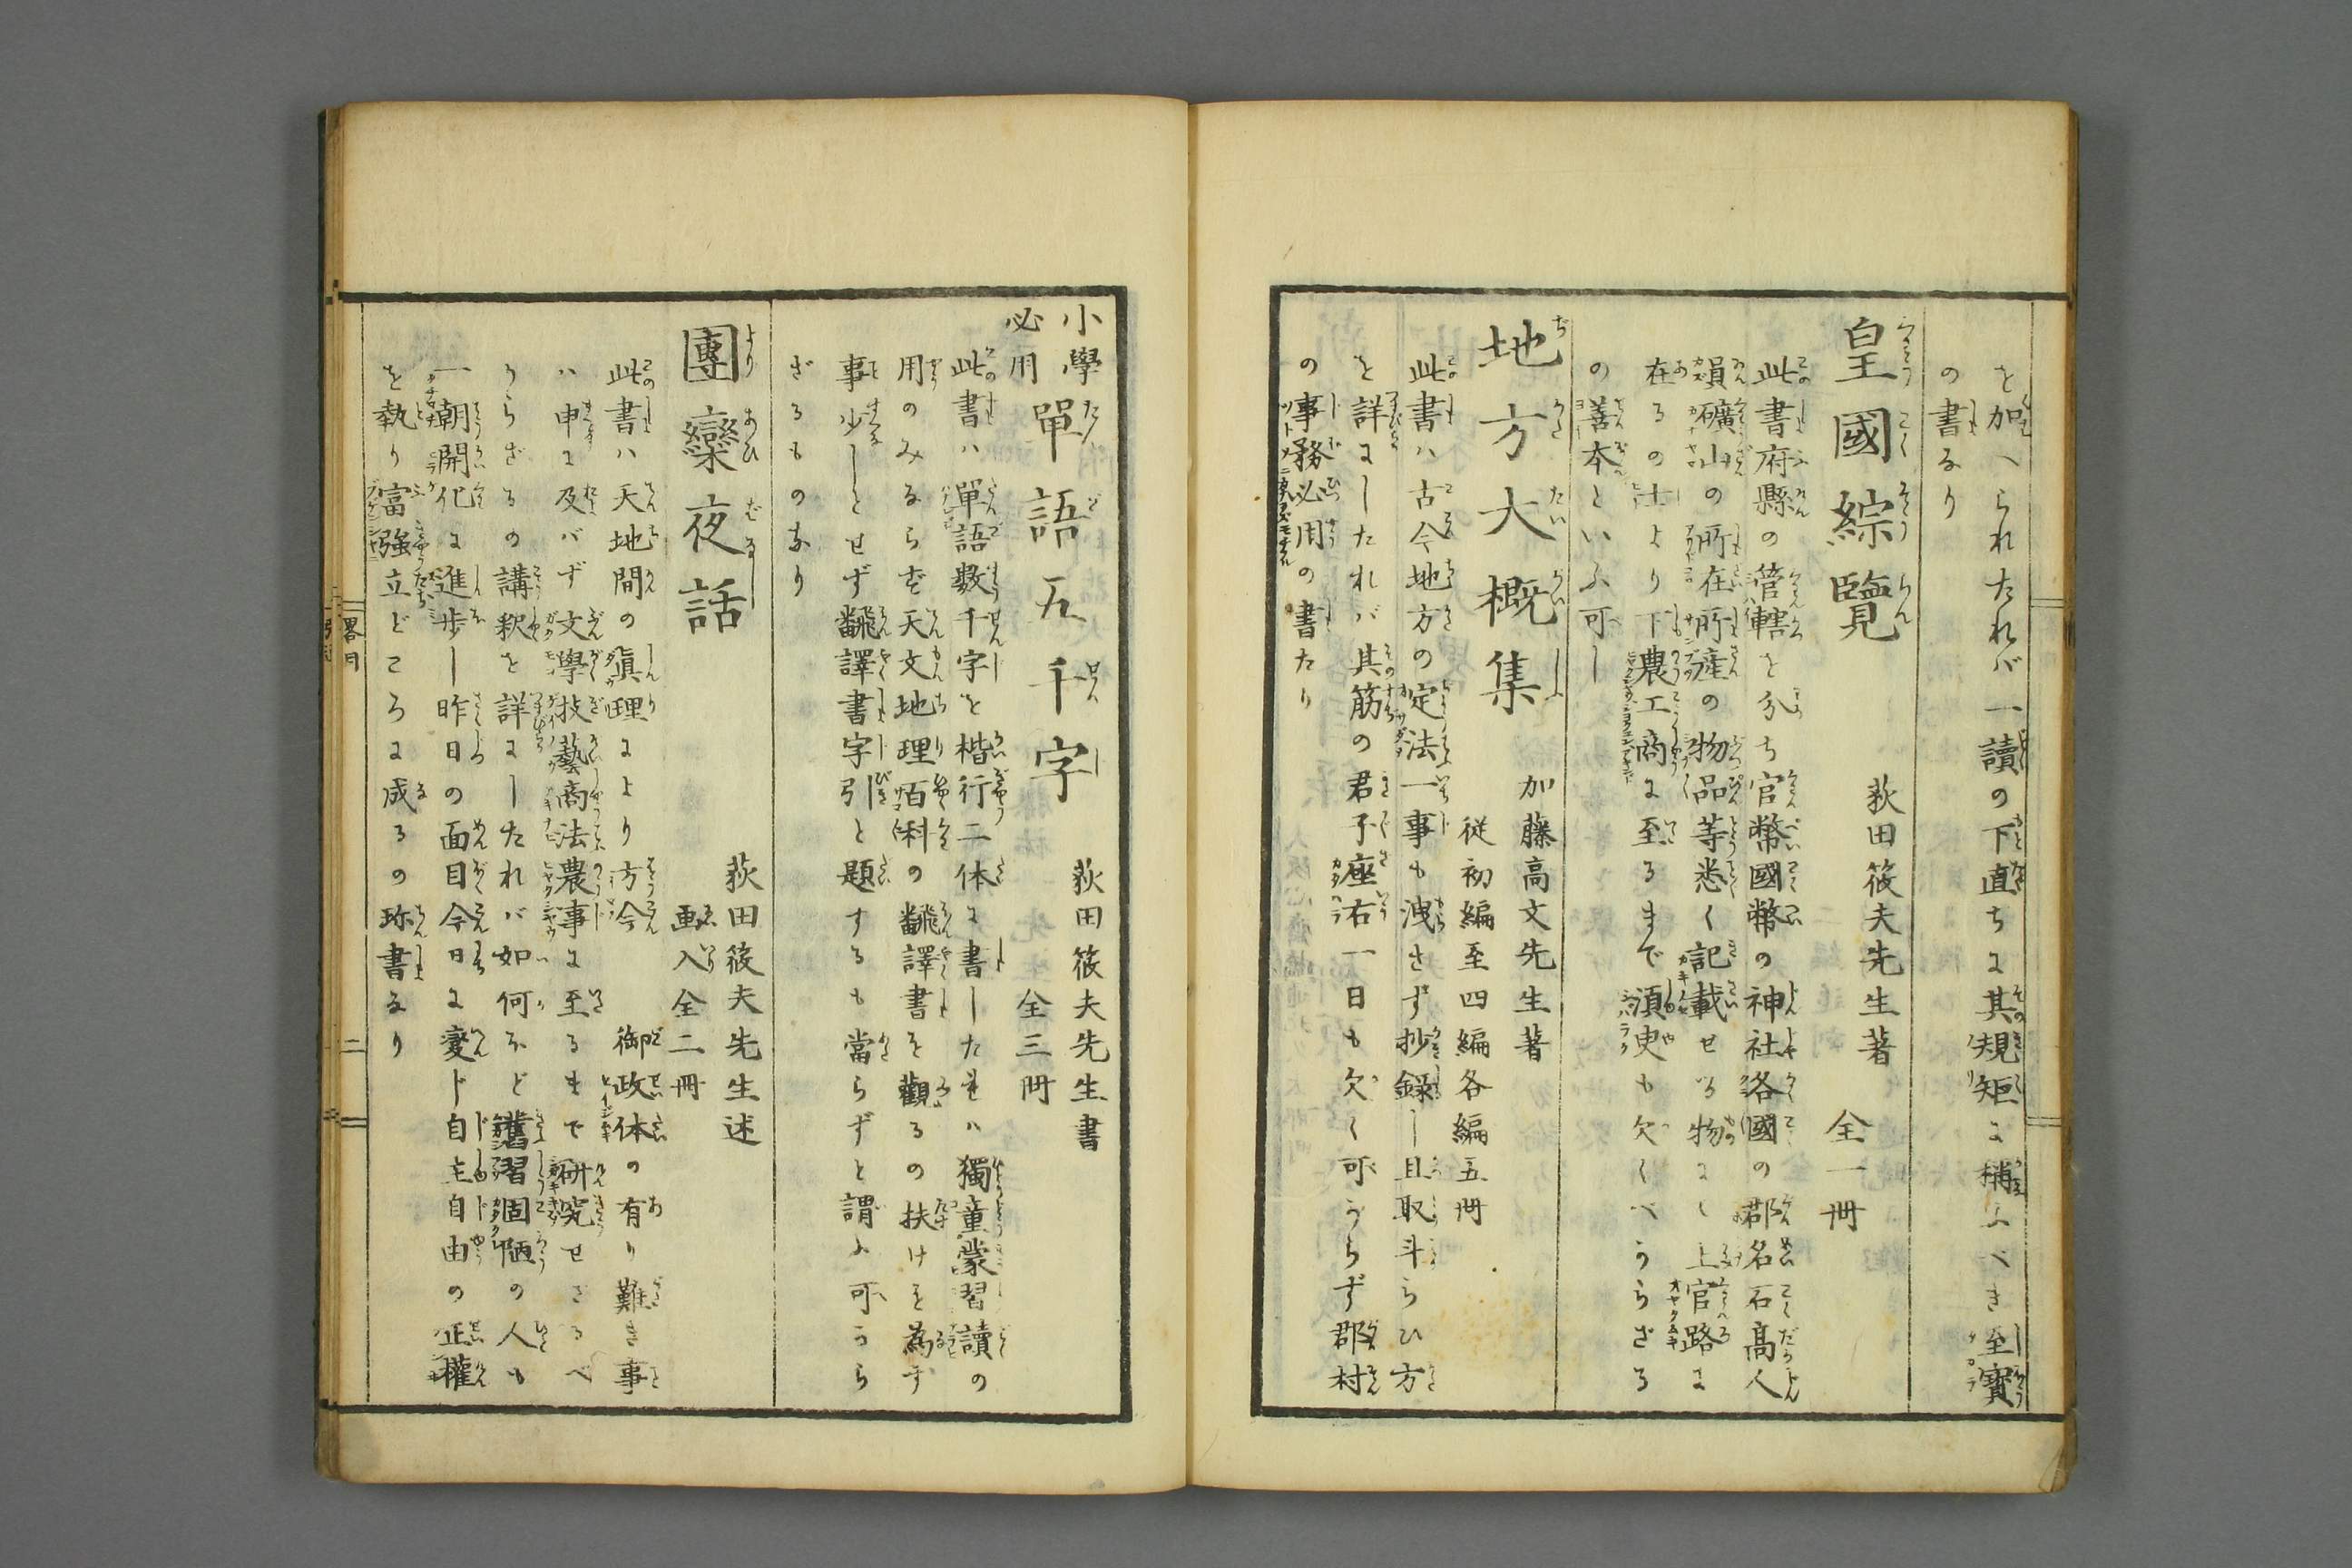 を加へられたれバ一讀の下直ちに其規矩に補ふべき至寳
の書なり
皇國綜覽
荻田筱夫先生著　全一冊
此書府縣の管轄を分ち官幣國幣の神社各國の郡名石高人
員礦山の所在所産の物品等悉く記載せる物にて上官路に
在るの士より下農工商に至るまで須臾も欠くべからざる
の善本といふ可し
地方大概集
加藤高文先生著
従初編至四編各編五冊
此書ハ古今地方の定法一事も洩さず抄録し且取斗らひ方
を詳にしたれバ其筋の君子座右一日も欠く可らず郡村
の事務必用の書たり
小學必用
單語五千字
荻田筱夫先生書
全三冊
此書ハ單語数千字を楷行二体に書したれハ獨童蒙習讀の
用のみならず天文地理百科の飜譯書を觀るの扶けを為す
事少しとせず飜譯書字引と題するも當らずと謂ふ可から
ざるものなり
團欒夜話
荻田筱夫先生述
画入全二冊
此書ハ天地間の眞理により方今　御政体の有り難き事
ハ申に及バず文學技藝商法農事に至るまで研究せざるべ
からざるの講釈を詳にしたれバ如何など舊習固陋の人も
一朝開化に進歩し昨日の面目今日に変ト自主自由の正權
を執り富強立どころに成るの珎書なり